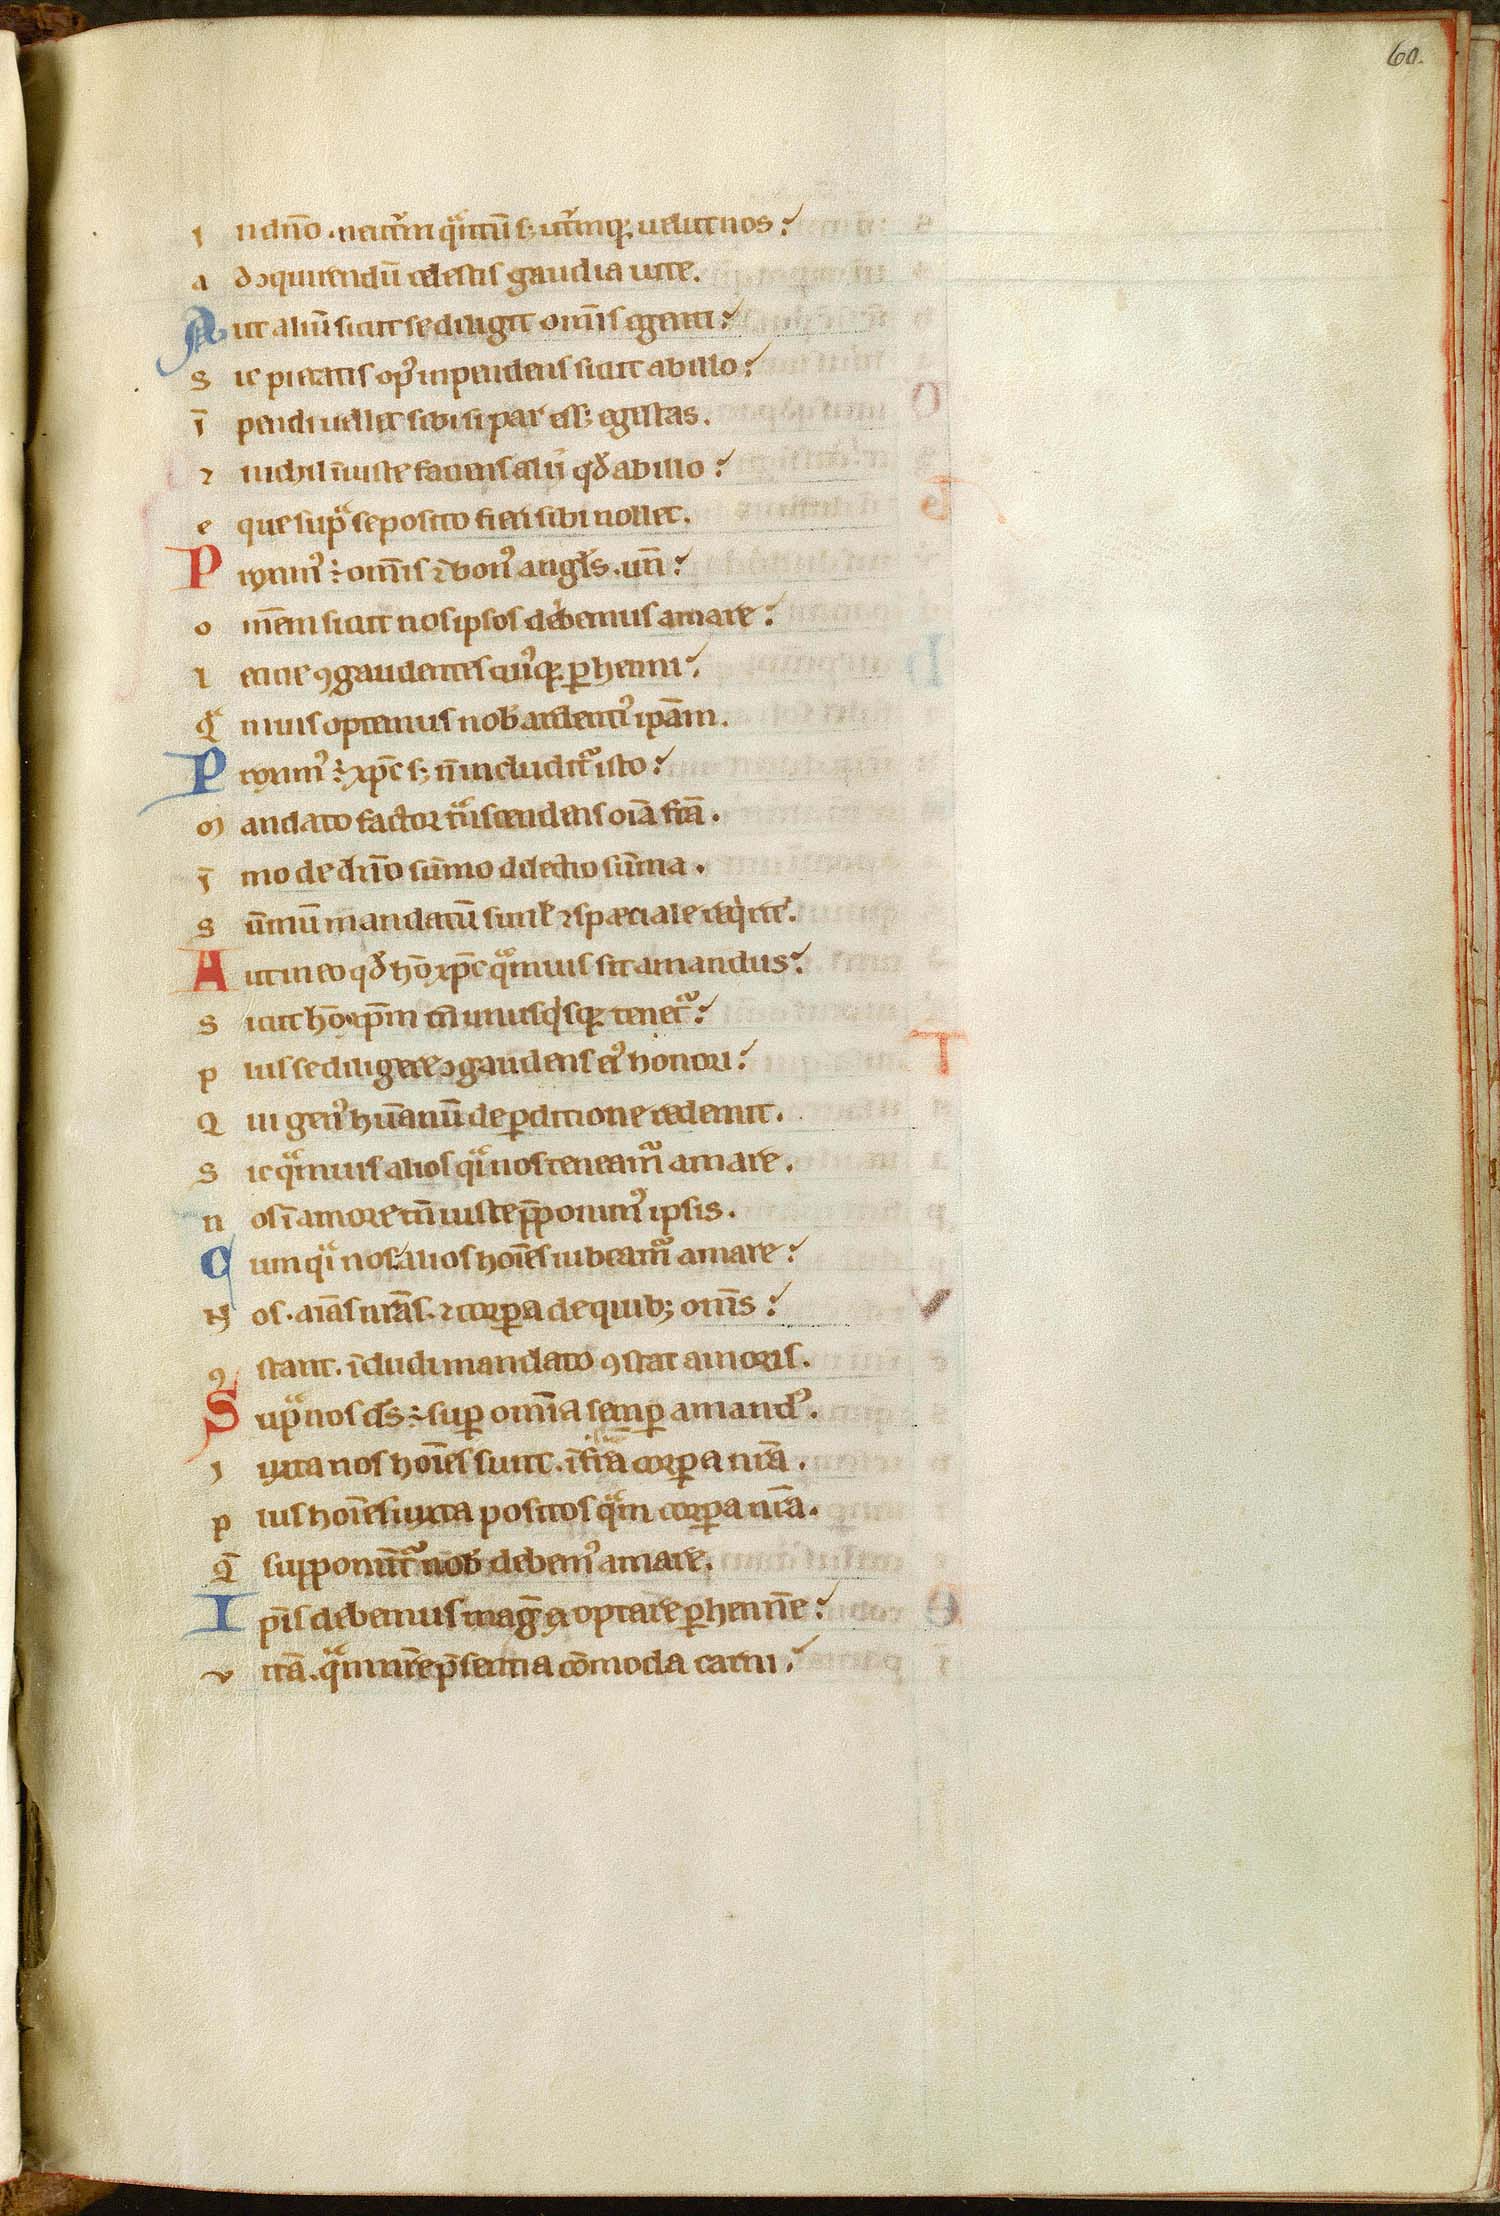 60.
In dn̄o. neut᷑m qͣntū s; ut᷑mq; uelut nos:
ad ɔquirendū celestis gaudia uite.
Aut aliū sicut se diligit om̄is egenti:
Sic pietatis op᷒ inpendens sicut ab illo:
īpendi uellet sibi si par ess; egestas.
⁊ nichil īiuste faciens alii qd̄ ab illo:
eque supͣ se posito fieri sibi nollet.
Proxim᷒ ÷ om̄is ⁊ bon᷒ angl̄s. un̄:
om̄em sicut nos ipsos debemus amare:
leticie ꝯgaudentes cui᷒q; ꝑhenni:
Qͣmuis optemus nob̄ ardenti᷒ ipām.
Proxim᷒ ÷ xp̄c s; n̄ includit᷑ isto:
Mandato factor tͣnscendens oīa fcā.
īmo de dn̄o sūmo dilectio sūma.
Sūmū mandatū simł ⁊ speciale reqͥrit.
Aut in eo qd̄ hō xp̄c qͣmuis sit amandus:
Sicut hō xp̄m tn̄ unusqͥsq; tenet᷑:
plus se diligere ɔgaudens ei᷒ honori:
Qui gen᷒ hūanū de ꝑditione redemit.
Sic qͣmuis alios qͣsi nos teneam᷑ amare.
nos ī amore tn̄ iuste p̄ponim᷒ ipsis.
Cum qͣsi nos alios hoīes iubeam᷑ amare:
Nos. aīas nr̄as. ⁊ corꝑa de quib; om̄s:
ꝯstant. īcludi mandato ꝯstat amoris.
Supͣ nos ds̄ ÷ suꝑ omīa semꝑ amand᷒.
Iuxta nos hoīes sunt. īfra corꝑa nr̄a.
plus hoīes iuxta positos qͣm corꝑa nr̄a.
Q̄ supponūt᷑ nob̄ debem᷒ amare.
Ip̄is debemus mag̅ ⁊ optare ꝑhenn̄e:
uitā. qͣm nr̄e p̄sentia cōmoda carni: